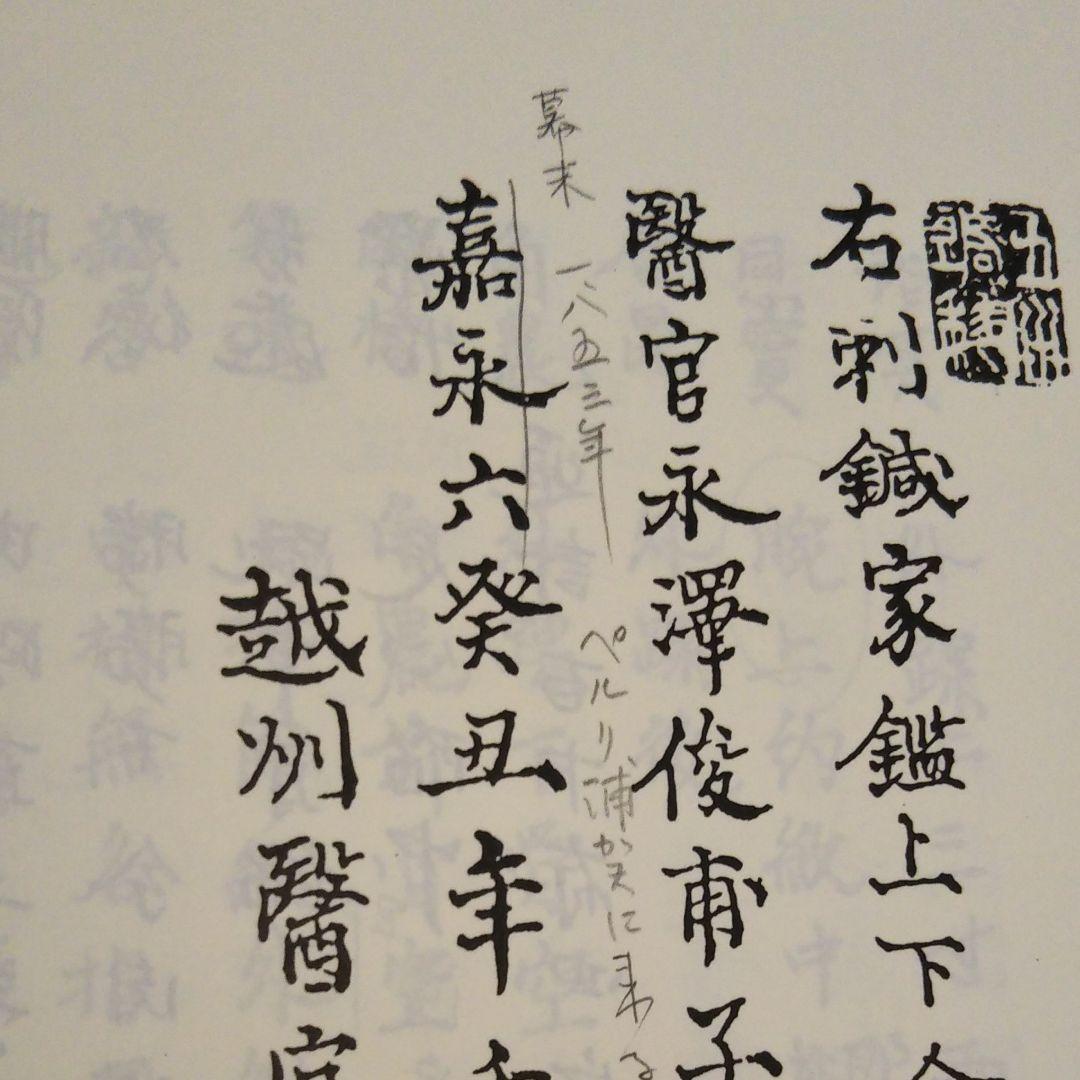 右刺鍼家鑑上下
醫官永澤俊甫子
幕末 一八五三年 ペルリ浦賀に来る
嘉永六癸丑年
越州醫官